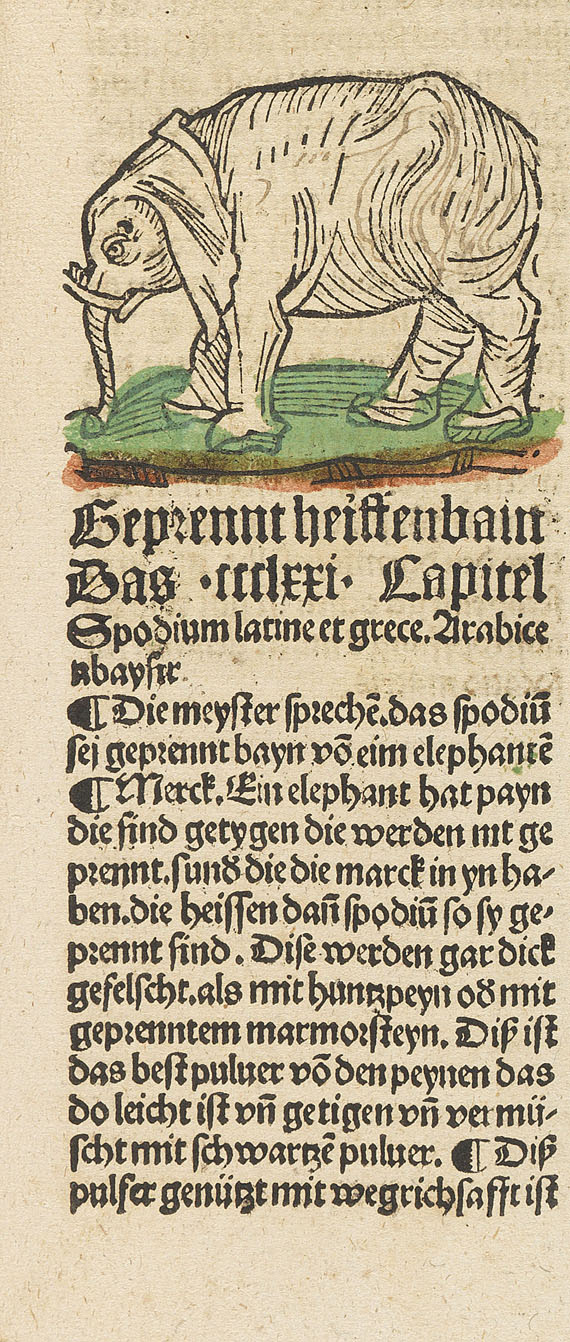 Geprennt helffenbain
Das ·ccclxxi· Capitel
Spodium latine et grece. Arabice
abayſir
¶ Die meyſter sprechē. das ſpodiū
ſei geprennt bayn vō eim elephantē
¶ Merck. Ein elephant hat payn
die ſind getygen die werden nit ge
prennt. ſund̕ die die marck in yn ha⸗
ben. die heiſſen dañ ſpodiū ſo ſy ge⸗
prennt ſind. Diſe werden gar dick
gefelſcht. als mit huntzpeyn od̕ mit
geprenntem marmorſteyn. Diß iſt
das beſt puluer vō den peynen das
do leicht iſt vñ getigen vñ vermü⸗
ſcht mit ſchwartzē puluer. ¶ Diß
pulfer genützt mit wegrichſafft iſt